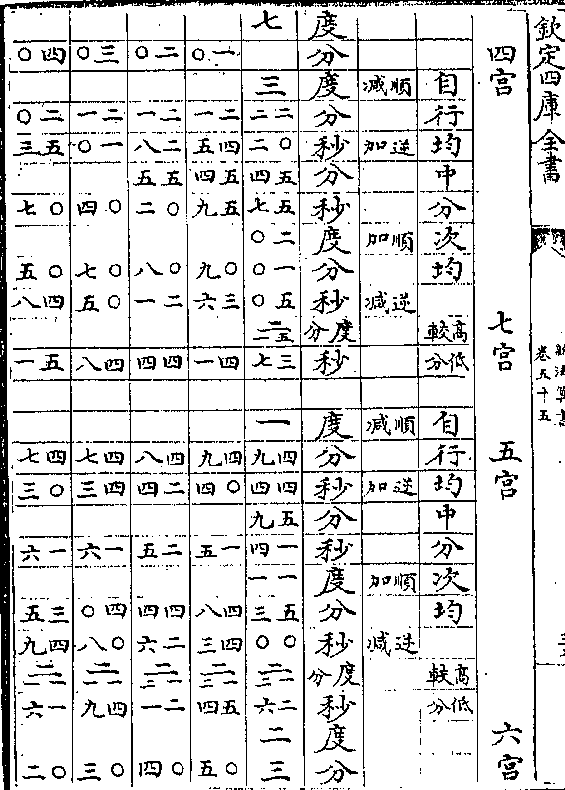 欽定四庫全書
卷五十五
四宮 七宮
度 七
分 一○ 二○ 三○ 四○
自 順減 度 三
行 分 二二 二一 二一 二一 二○
均 逆加 秒 ○二 四五 二八 一○ 五三
中 分 五四 五四 五五
分 秒 五七 五九 ○二 ○四 ○七
次 順加 度 二○
均 分 一○ ○九 ○八 ○七 ○五
逆減 秒 五○ 三六 二一 ○五 四八
高較 度分
低分 秒 三七 四一 四四 四八 五一
五宮 六宮
自 順減 度 一
行 分 四九 四九 四八 四七 四七
均 逆加 秒 四四 ○四 二四 四三 ○三
中 分 五九
分 秒 一四 一五 二五 一六 一六
次 順加 度 一一
均 分 五三 四八 四四 四○ 三五
逆減 秒 ○○ 四三 二六 ○八 四九
高較 度分
低分 秒 二六 五四 二一 四九 一六
度 二
分 三 ○五 ○四 ○三 ○二